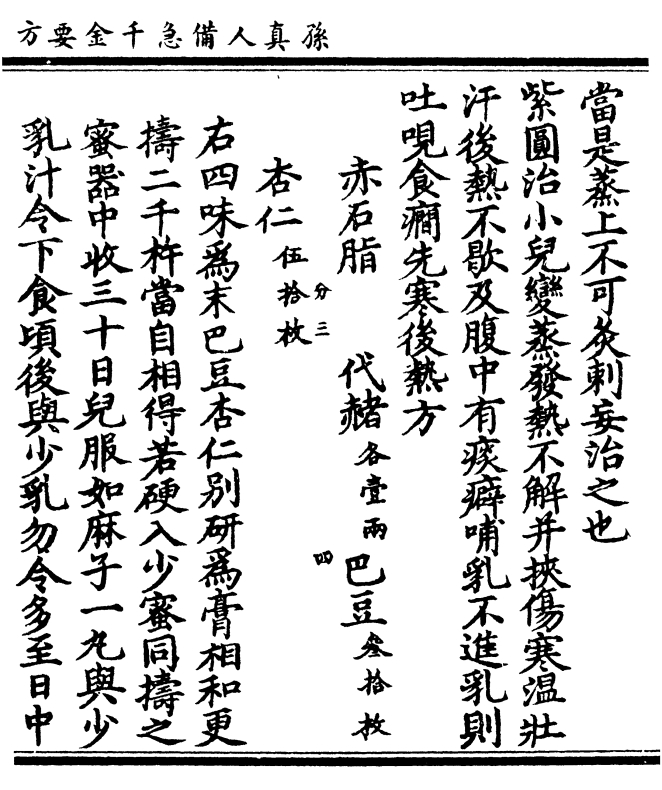 孫真人備急千金要方
當是蒸上不可灸刺妄治之也
紫圓治小兒變蒸發熱不解并挾傷寒温壯
汗後熱不歇及腹中有痰癖哺乳不進乳則
吐哯食癇先寒後熱方
赤石脂 代赭各壹兩 巴豆叁拾枚
四
杏仁伍拾枚
分三
右四味爲末巴豆杏仁别研爲膏相和更
擣二千杵當自相得若硬入少蜜同擣之
蜜器中收三十日兒服如麻子一丸與少
乳汁令下食頃後與少乳勿令多至日中